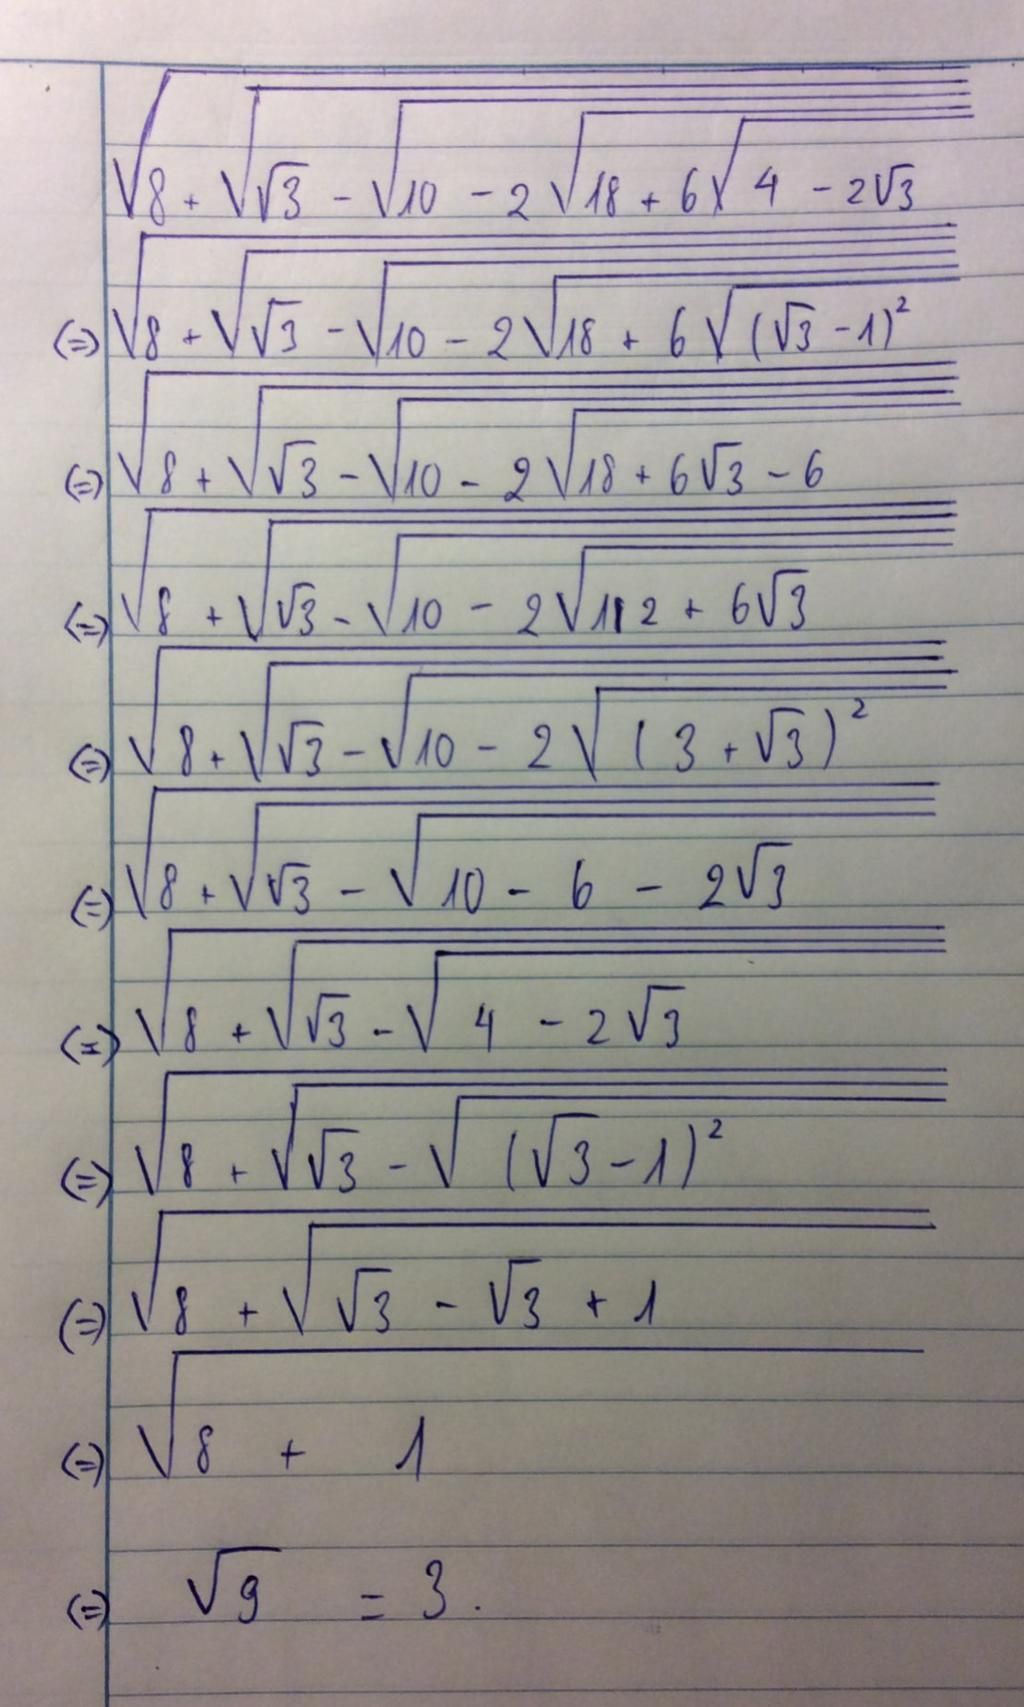 √(8 + √(√3 - √(10 - 2√(18 + 6√(4 - 2√3)))))
(=) √(8 + √(√3 - √(10 - 2√(18 + 6√((√3 - 1)²)))))
(=) √(8 + √(√3 - √(10 - 2√(18 + 6√3 - 6))))
(=) √(8 + √(√3 - √(10 - 2√(112 + 6√3))))
(=) √(8 + √(√3 - √(10 - 2√((3 + √3)²))))
(=) √(8 + √(√3 - √(10 - 6 - 2√3)))
(=) √(8 + √(√3 - √(4 - 2√3)))
(=) √(8 + √(√3 - √((√3 - 1)²)))
(=) √(8 + √(√3 - √3 + 1))
(=) √(8 + 1)
(=) √9 = 3.